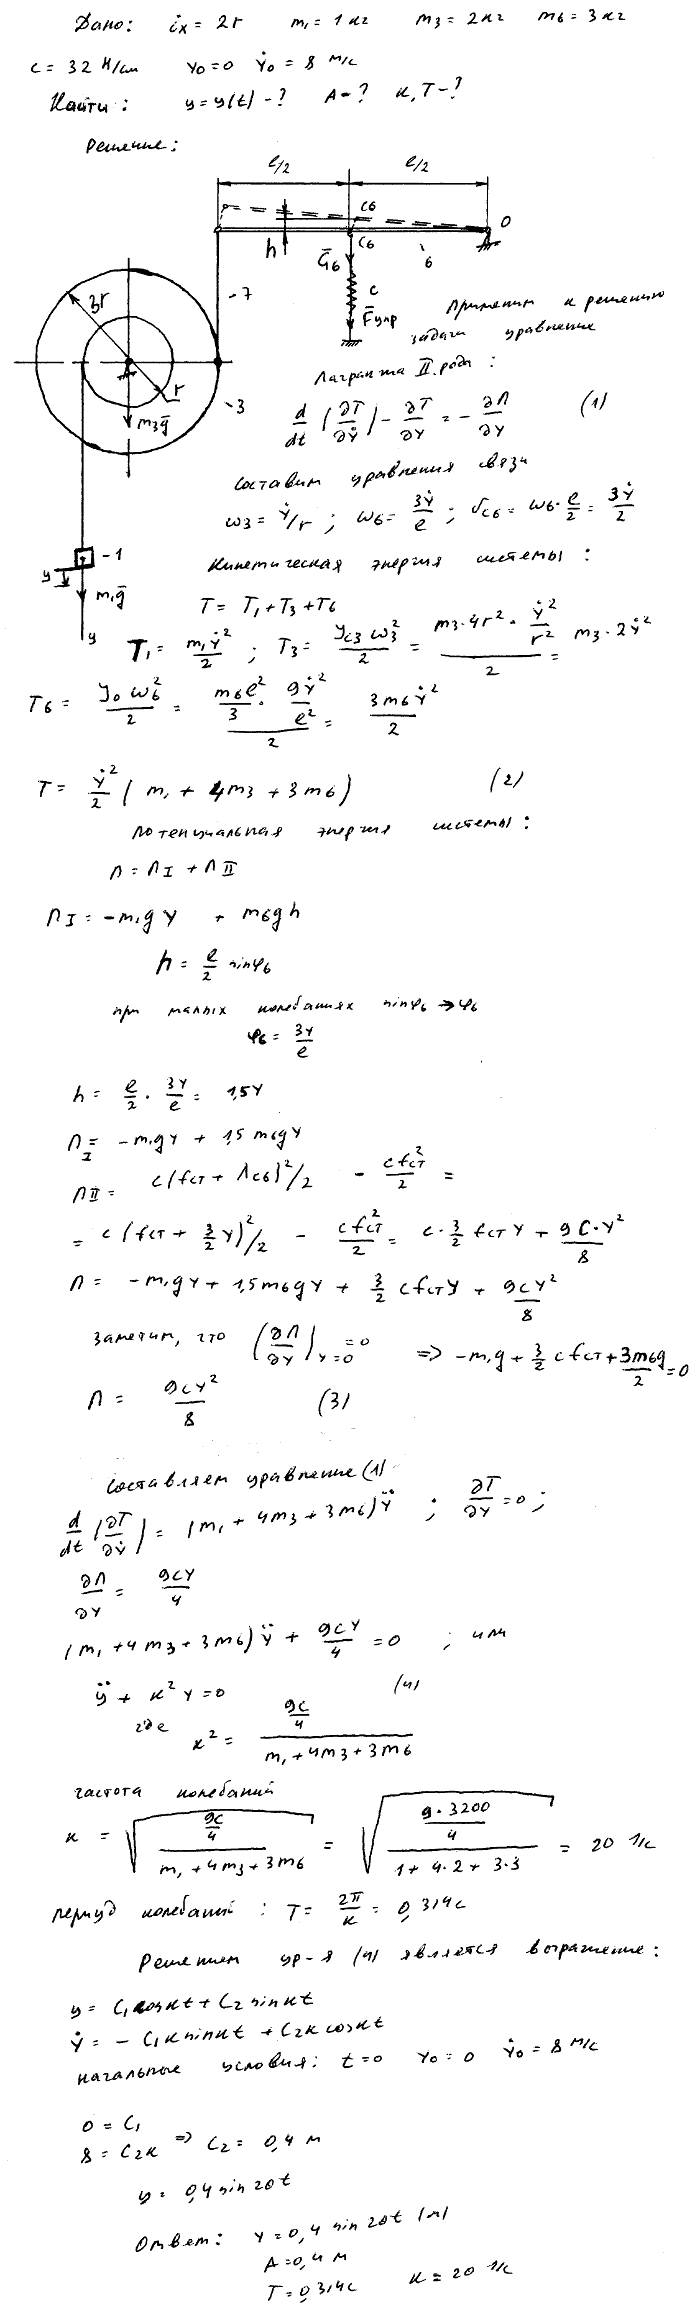 Дано: ix = 2r m₁ = 1 кг m3 = 2 кг m6 = 3 кг
c = 32 Н/см Y0 = 0 Ẏ0 = 8 м/с
Найти: y = y(t) - ? A - ? к, T - ?
Решение:
ℓ/2 ℓ/2
C6 O
h G̅6 C6 6
c
3r - 7 F̅упр
Применим к решению
задачи уравнение
Лагранжа II рода:
r
m3g̅ - 3
d/dt (∂T/∂Ẏ) - ∂T/∂Y = - ∂П/∂Y (1)
Составим уравнения связи
ω3 = Ẏ/r ; ω6 = 3Ẏ/ℓ ; Vc6 = ω6 · ℓ/2 = 3Ẏ/2
y - 1
m₁g̅
y
Кинетическая энергия системы:
T = T₁ + T3 + T6
T₁ = m₁Ẏ²/2 ; T3 = Jc3 ω3²/2 = (m3 · 4r² · Ẏ²/r²)/2 = m3 · 2Ẏ²
T6 = J0 ω6²/2 = (m6ℓ²/3 · 9Ẏ²/ℓ²)/2 = 3m6Ẏ²/2
T = Ẏ²/2 (m₁ + 4m3 + 3m6) (2)
Потенциальная энергия системы:
П = ПI + ПII
ПI = -m₁gY + m6gh
h = ℓ/2 sinφ6
при малых колебаниях sinφ6 → φ6
φ6 = 3Y/ℓ
h = ℓ/2 · 3Y/ℓ = 1,5Y
ПI = -m₁gY + 1,5 m6gY
ПII = c(fст + λc6)²/2 - cfст²/2 =
= c(fст + 3/2 Y)²/2 - cfст²/2 = c · 3/2 fст Y + 9C·Y²/8
П = -m₁gY + 1,5m6gY + 3/2 cfстY + 9cY²/8
Заметим, что (∂П/∂Y)Y=0 = 0 => -m₁g + 3/2 cfст + 3m6g/2 = 0
П = 9cY²/8 (3)
Составляем уравнение (1)
d/dt (∂T/∂Ẏ) = (m₁ + 4m3 + 3m6)Ÿ ; ∂T/∂Y = 0 ;
∂П/∂Y = 9cY/4
(m₁ + 4m3 + 3m6)Ÿ + 9cY/4 = 0 ; или
ÿ + к²Y = 0 (4)
где к² = (9c/4)/(m₁ + 4m3 + 3m6)
частота колебаний
к = √((9c/4)/(m₁ + 4m3 + 3m6)) = √((9·3200/4)/(1 + 4·2 + 3·3)) = 20 1/с
период колебаний: T = 2π/к = 0,314с
Решением ур-я (4) является выражение:
y = C₁cosкt + C2 sinкt
Ẏ = - C₁кsinкt + C2к cosкt
начальные условия: t=0 Y0 = 0 Ẏ0 = 8 м/с
0 = C₁
8 = C2к => C2 = 0,4 м
y = 0,4 sin 20t
Ответ: Y = 0,4 sin 20t (м)
A = 0,4 м
T = 0,314с к = 20 1/с